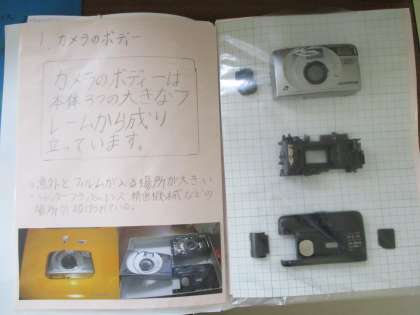 1. カメラのボディー
カメラのボディーは
本体3つの大きなフ
レームから成り
立っています。
意外とフィルムが入る場所が大きい
シャッター フラッシュ レンズ 精密機械などの
場所が
ている。